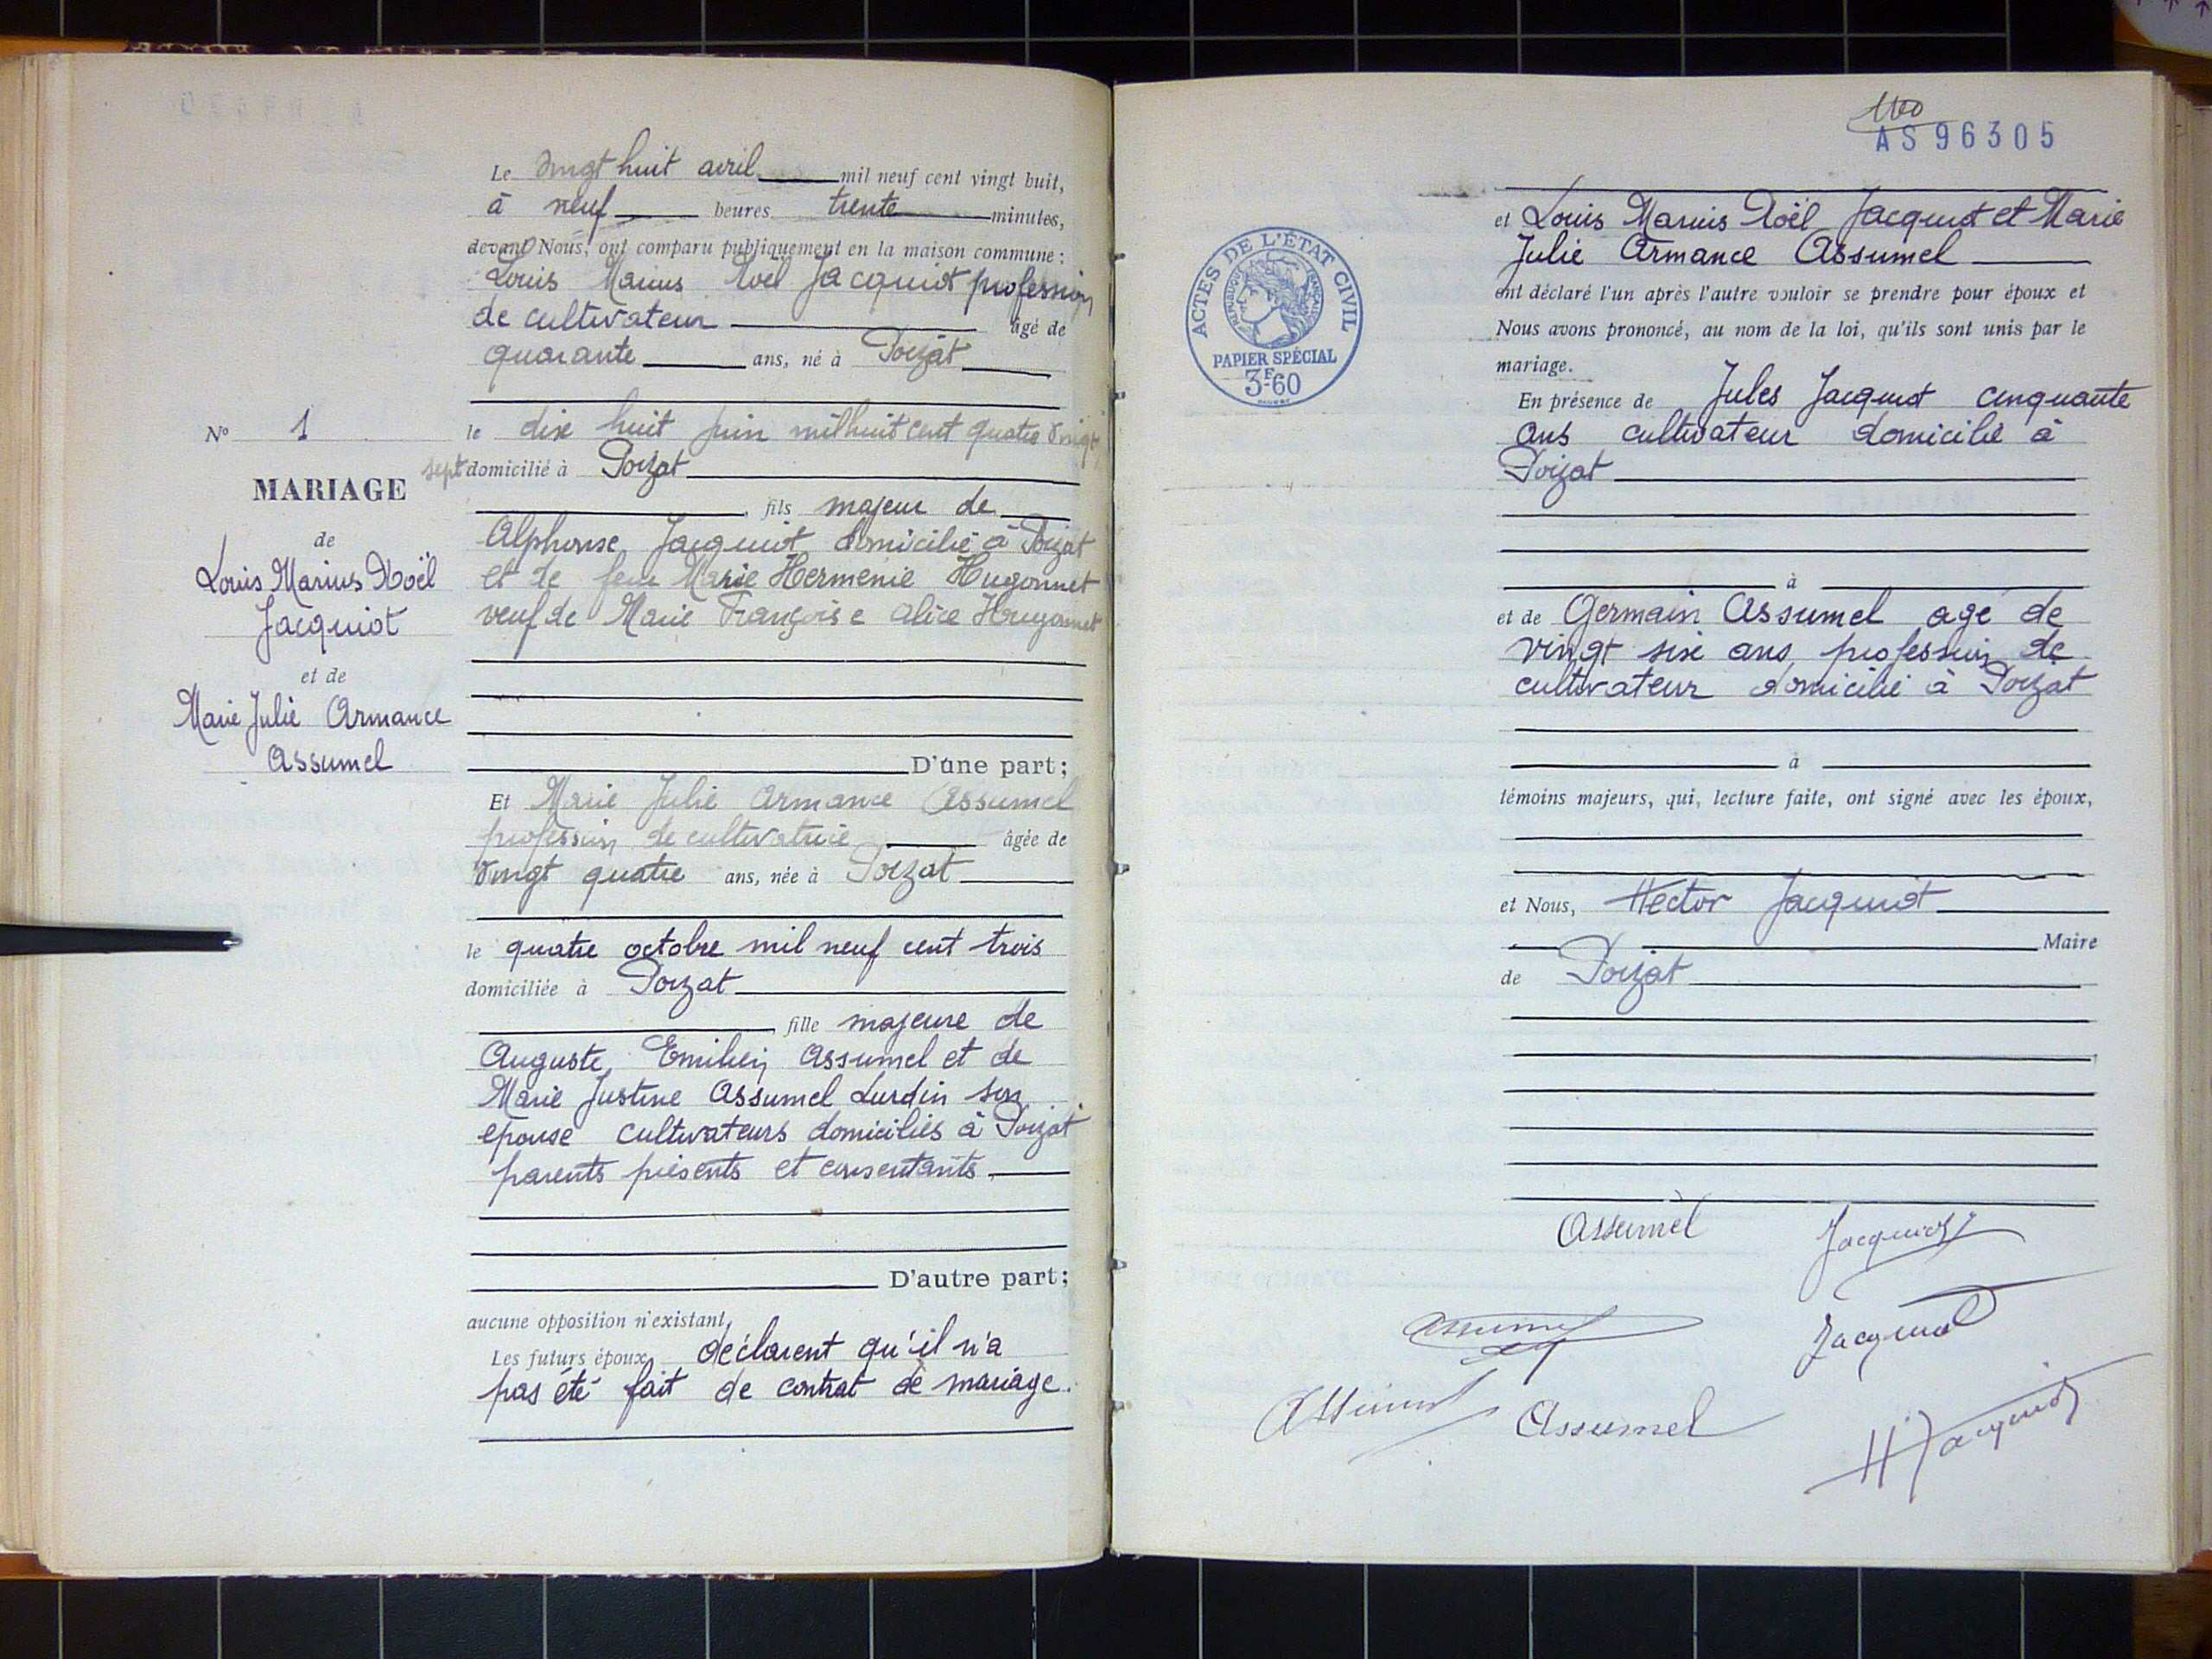 Le vingt huit avril mil neuf cent vingt huit,
à neuf heures trente minutes,
devant Nous, ont comparu publiquement en la maison commune :
Louis Marius Noël Jacquiot profession
de cultivateur âgé de
quarante ans, né à Poizat
le dix huit juin mil huit cent quatre vingt
sept domicilié à Poizat
fils majeur de
Alphonse Jacquiot domicilié à Poizat
et de feue Marie Hermenie Hugonnet
veuf de Marie Françoise Alice Hugonnet
D'une part ;
Et Marie Julie Armance Assumel
profession de cultivatrice âgée de
vingt quatre ans, née à Poizat
le quatre octobre mil neuf cent trois
domiciliée à Poizat
fille majeure de
Auguste Emilien Assumel et de
Marie Justine Assumel Lurdin son
épouse cultivateurs domiciliés à Poizat
parents présents et consentants
D'autre part ;
aucune opposition n'existant,
Les futurs époux déclarent qu'il n'a
pas été fait de contrat de mariage.
N° 1
MARIAGE
de
Louis Marius Noël
Jacquiot
et de
Marie Julie Armance
Assumel
AS 96305
ACTES DE L'ÉTAT CIVIL
RÉPUBLIQUE FRANÇAISE
PAPIER SPÉCIAL
3F.60
et Louis Marius Noël Jacquiot et Marie
Julie Armance Assumel
ont déclaré l'un après l'autre vouloir se prendre pour époux et
Nous avons prononcé, au nom de la loi, qu'ils sont unis par le
mariage.
En présence de Jules Jacquiot cinquante
ans cultivateur domicilié à
Poizat
à
et de Germain Assumel agé de
vingt six ans profession de
cultivateur domicilié à Poizat
à
témoins majeurs, qui, lecture faite, ont signé avec les époux,
et Nous, Hector Jacquiot
Maire
de Poizat
Assumel Jacquiot
Assumel Jacquiot
Assumel Assumel H Jacquiot